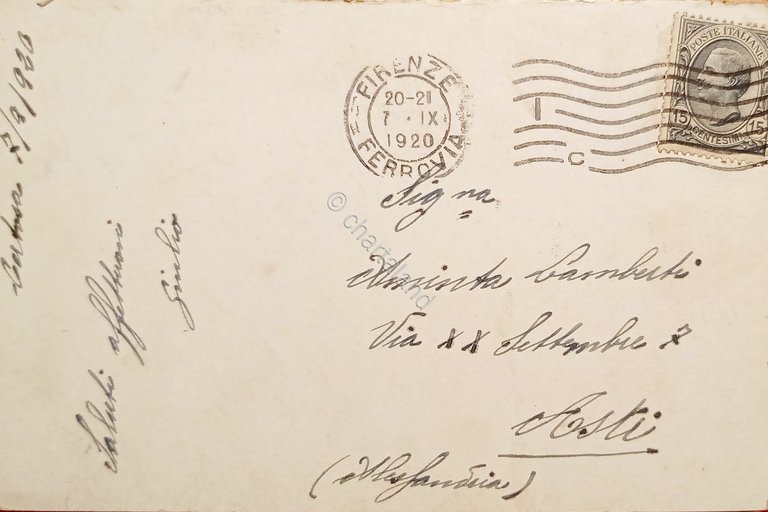 Certosa 7/9/1920
Saluti affettuosi
Giulio
FIRENZE
20-21
7 · IX
1920
FERROVIA
1
C
POSTE ITALIANE
15 15
CENTESIMI
Sig na
Aminta Lamberti
Via XX Settembre 7
Asti
(Alessandria)
© chartaland